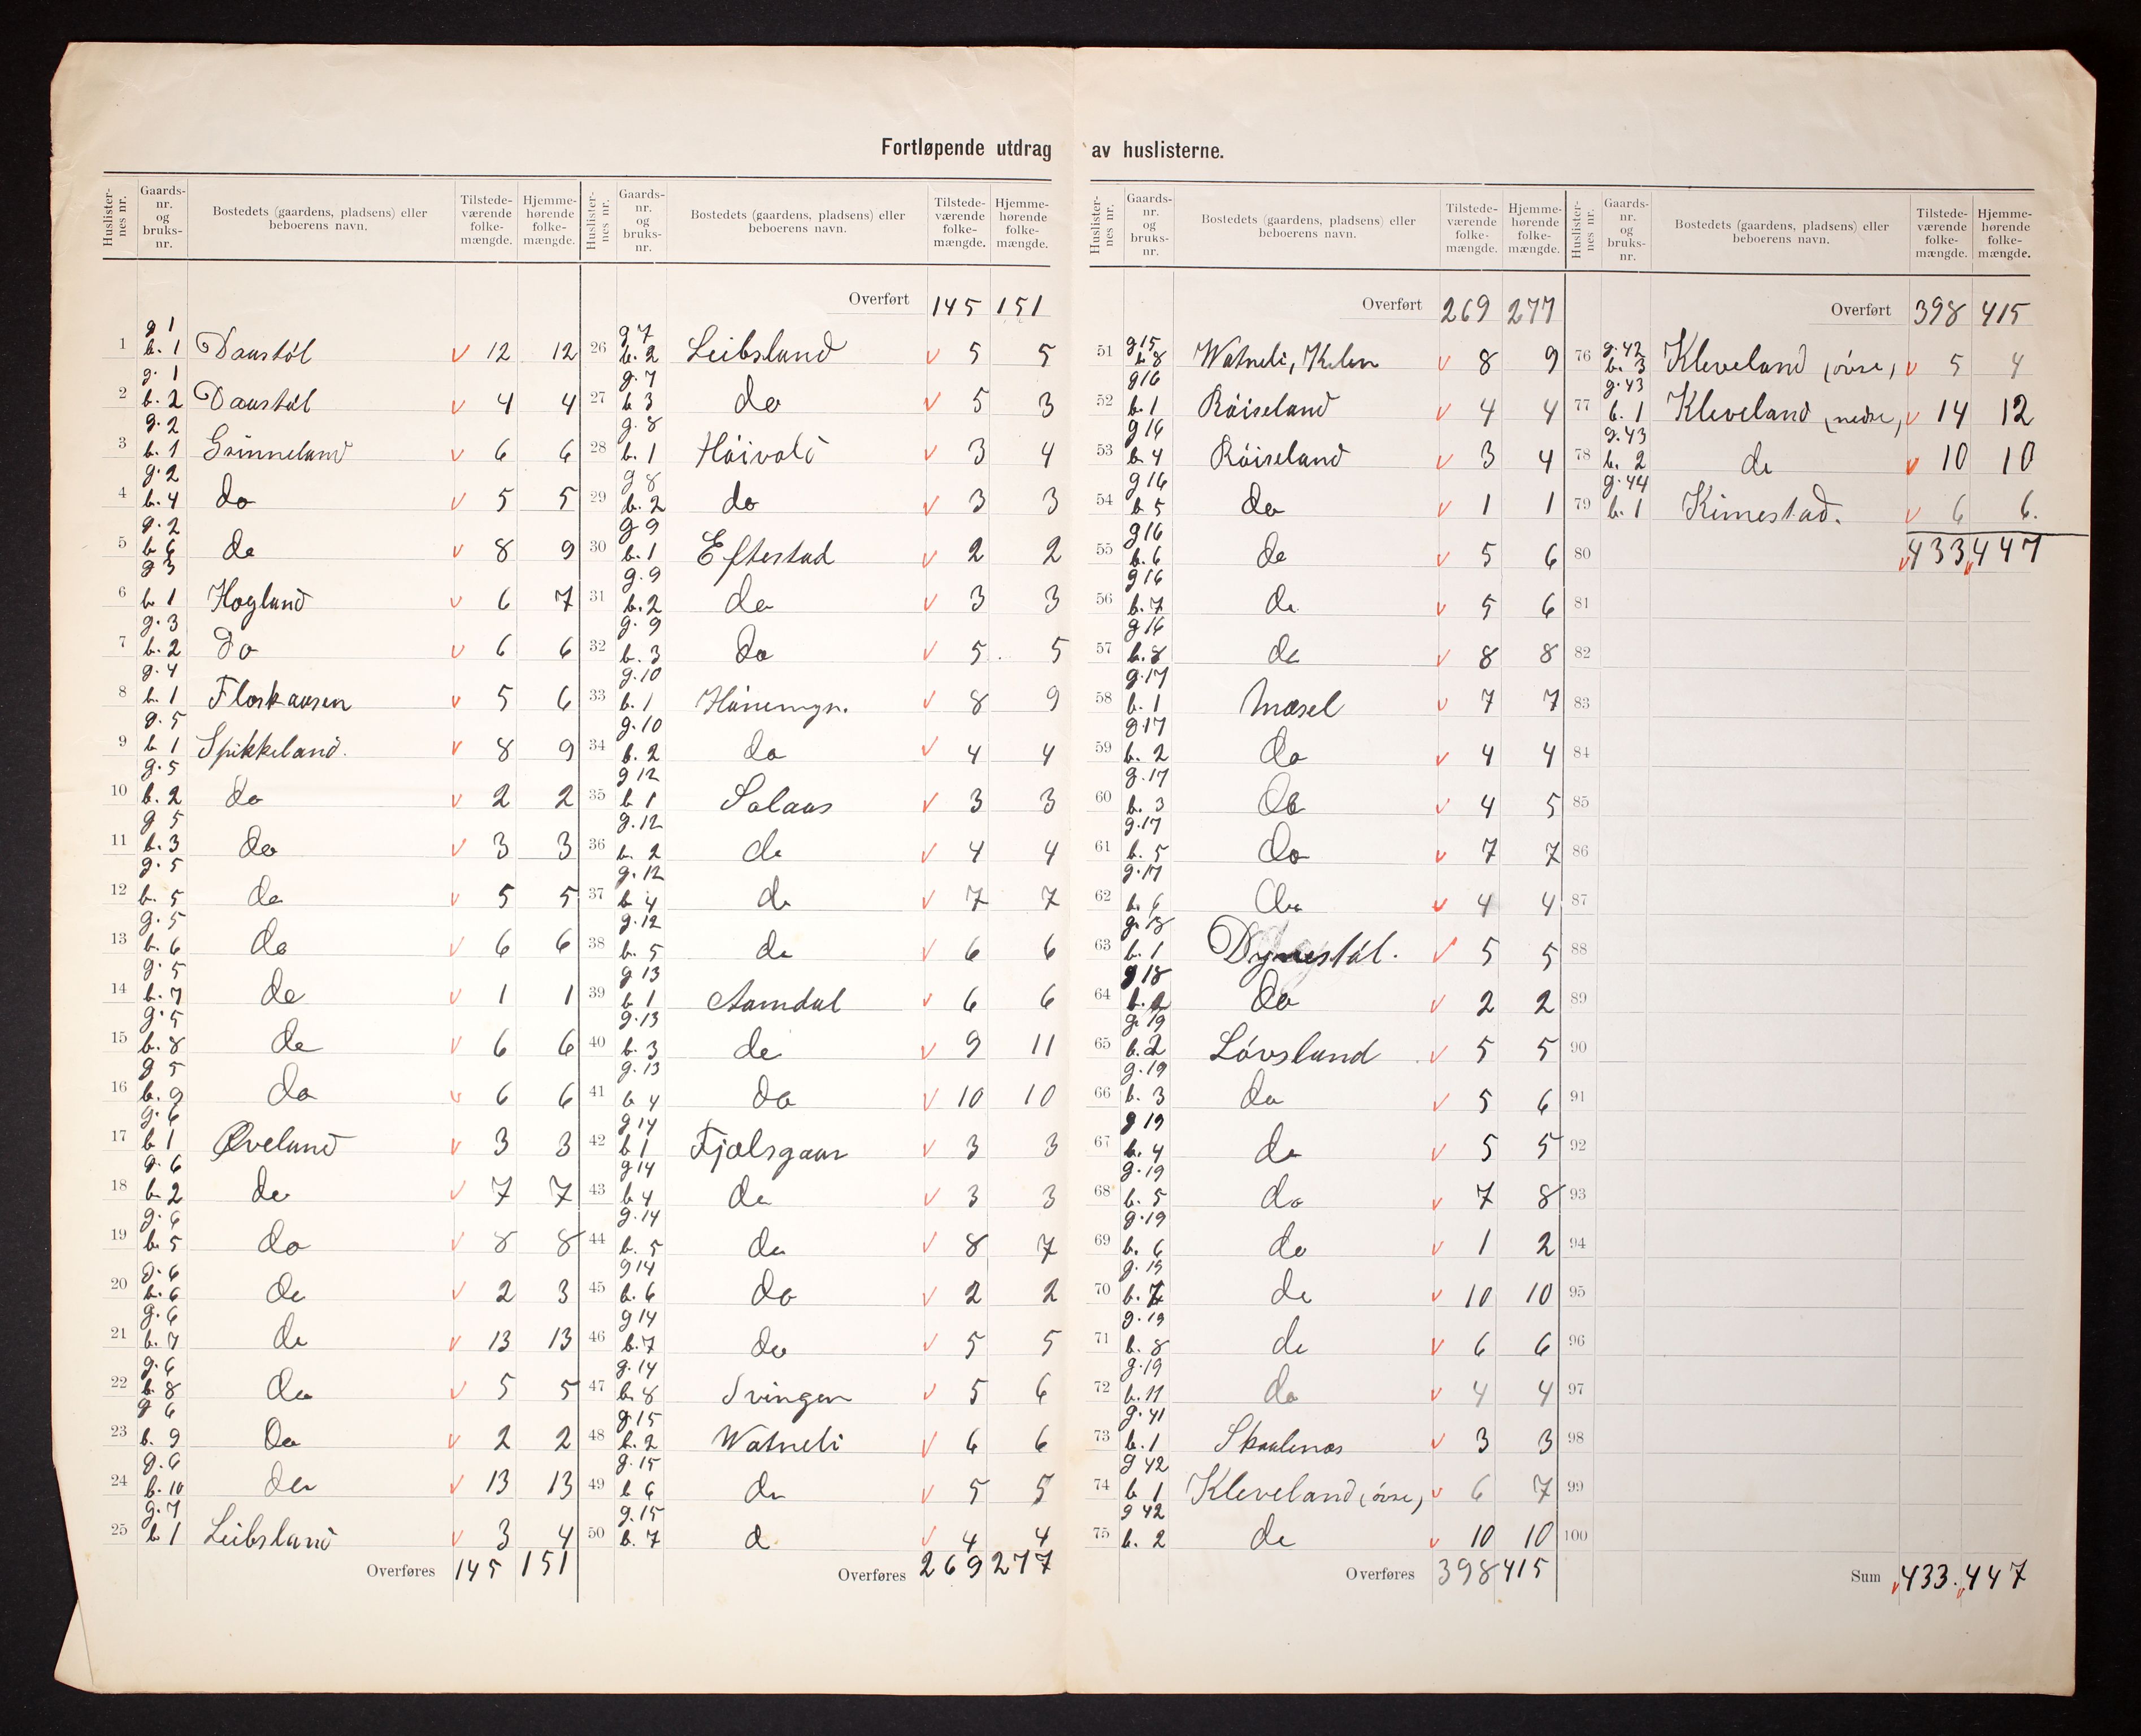 Fortløpende utdrag av huslisterne.
Huslister-nes nr. Gaards-nr. og bruks-nr. Bostedets (gaardens, pladsens) eller beboerens navn. Tilstede-værende folke-mængde. Hjemme-hørende folke-mængde.
1 g 1 b. 1 Daustøl v 12 12
2 g. 1 b. 2 Daustøl v 4 4
3 g. 2 b. 1 Grinneland v 6 6
4 g. 2 b. 4 do v 5 5
5 g. 2 b 6 do v 8 9
6 g 3 b 1 Hogland v 6 7
7 g. 3 b. 2 Do v 6 6
8 g. 4 b. 1 v 5 6
9 g. 5 b 1 Spikkeland. v 8 9
10 g. 5 b. 2 do v 2 2
11 g 5 b. 3 do v 3 3
12 g. 5 b. 5 do v 5 5
13 g. 5 b. 6 do v 6 6
14 g. 5 b. 7 do v 1 1
15 g. 5 b. 8 do v 6 6
16 g 5 b. 9 do v 6 6
17 g. 6 b 1 Øveland v 3 3
18 g. 6 b 2 do v 7 7
19 g. 6 b. 5 do v 8 8
20 g. 6 b. 6 do v 2 3
21 g. 6 b. 7 do v 13 13
22 g. 6 b. 8 do v 5 5
23 g 6 b. 9 do v 2 2
24 g. 6 b. 10 do v 13 13
25 g. 7 b 1 Leibsland v 3 4
Overføres 145 151
Huslister-nes nr. Gaards-nr. og bruks-nr. Bostedets (gaardens, pladsens) eller beboerens navn. Tilstede-værende folke-mængde. Hjemme-hørende folke-mængde.
Overført 145 151
26 g 7 b. 2 Leibsland v 5 5
27 g. 7 b 3 do v 5 3
28 g. 8 b. 1 Høivold v 3 4
29 g 8 b. 2 do v 3 3
30 g 9 b. 1 Eftestad v 2 2
31 g. 9 b. 2 do v 3 3
32 g. 9 b. 3 do v 5 5
33 g. 10 b. 1 v 8 9
34 g. 10 b. 2 do v 4 4
35 g 12 b 1 Solaas v 3 3
36 g. 12 b. 2 do v 4 4
37 g. 12 b 4 do v 7 7
38 g. 12 b. 5 do v 6 6
39 g 13 b 1 Aamdal v 6 6
40 g. 13 b. 3 do v 9 11
41 g. 13 b 4 do v 10 10
42 g 14 b 1 Fjælsgaar v 3 3
43 g 14 b 4 do v 3 3
44 g. 14 b. 5 do v 8 7
45 g 14 b. 6 do v 2 2
46 g 14 b. 7 do v 5 5
47 g. 14 b. 8 Svingen v 5 6
48 g. 15 b. 2 Watneli v 6 6
49 g. 15 b 6 do v 5 5
50 g. 15 b. 7 d v 4 4
Overføres 269 277
Huslister-nes nr. Gaards-nr. og bruks-nr. Bostedets (gaardens, pladsens) eller beboerens navn. Tilstede-værende folke-mængde. Hjemme-hørende folke-mængde.
Overført 269 277
51 g 15 b 8 Watneli, v 8 9
52 g 16 b. 1 Røiseland v 4 4
53 g 16 b 4 Røiseland v 3 4
54 g 16 b 5 do v 1 1
55 g 16 b. 6 do v 5 6
56 g 16 b. 7 do v 5 6
57 g 16 b. 8 do v 8 8
58 g. 17 b. 1 Mosel v 7 7
59 g. 17 b. 2 do v 4 4
60 g. 17 b. 3 do v 4 5
61 g. 17 b. 5 do v 7 7
62 g. 17 b. 6 do v 4 4
63 g. 18 b. 1 Dynestøl. v 5 5
64 g 18 b. 2 do v 2 2
65 g. 19 b. 2 Løvsland v 5 5
66 g. 19 b. 3 do v 5 6
67 g 19 b. 4 do v 5 5
68 g. 19 b. 5 do v 7 8
69 g. 19 b. 6 do v 1 2
70 g. 19 b. 7 do v 10 10
71 g. 19 b. 8 do v 6 6
72 g. 19 b. 11 do v 4 4
73 g. 41 b. 1 Skaalenes v 3 3
74 g 42 b 1 Kleveland (øvre) v 6 7
75 g 42 b. 2 do v 10 10
Overføres 398 415
Huslister-nes nr. Gaards-nr. og bruks-nr. Bostedets (gaardens, pladsens) eller beboerens navn. Tilstede-værende folke-mængde. Hjemme-hørende folke-mængde.
Overført 398 415
76 g. 42 b. 3 Kleveland (øvre) v 5 4
77 g. 43 b. 1 Kleveland (nedre) v 14 12
78 g. 43 b. 2 do v 10 10
79 g. 44 b. 1 Kimestad. v 6 6.
80 v 433 v 447
81
82
83
84
85
86
87
88
89
90
91
92
93
94
95
96
97
98
99
100
Sum v 433. v 447